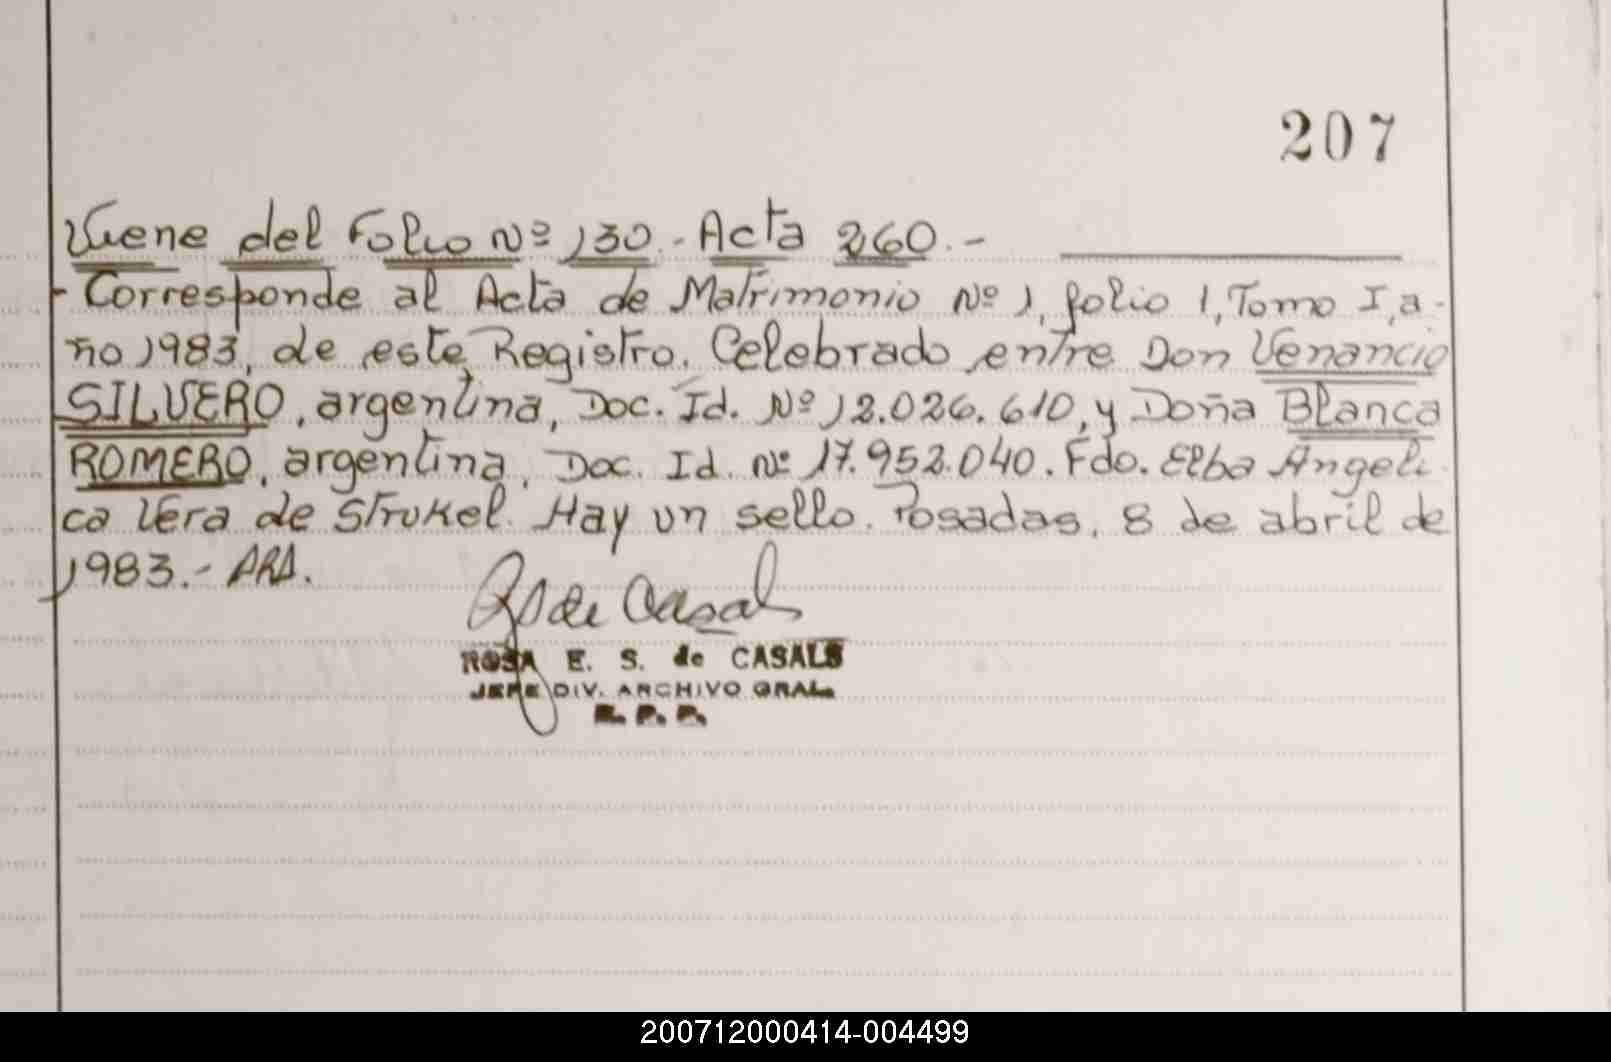 207
Viene del Folio Nº 130.- Acta 260.-
- Corresponde al Acta de Matrimonio Nº 1, folio 1, Tomo I, a-
ño 1983, de este Registro. Celebrado entre Don Venancio
SILVERO, argentina, Doc. Id. Nº 12.026.610, y Doña Blanca
ROMERO, argentina, Doc. Id. Nº 17.952.040. Fdo. Elba Angeli-
ca Vera de Strukel. Hay un sello. Posadas, 8 de abril de
1983.- ARA.
RS de Casals
ROSA E. S. de CASALS
JEFE DIV. ARCHIVO GRAL.
R. P. P.
200712000414-004499